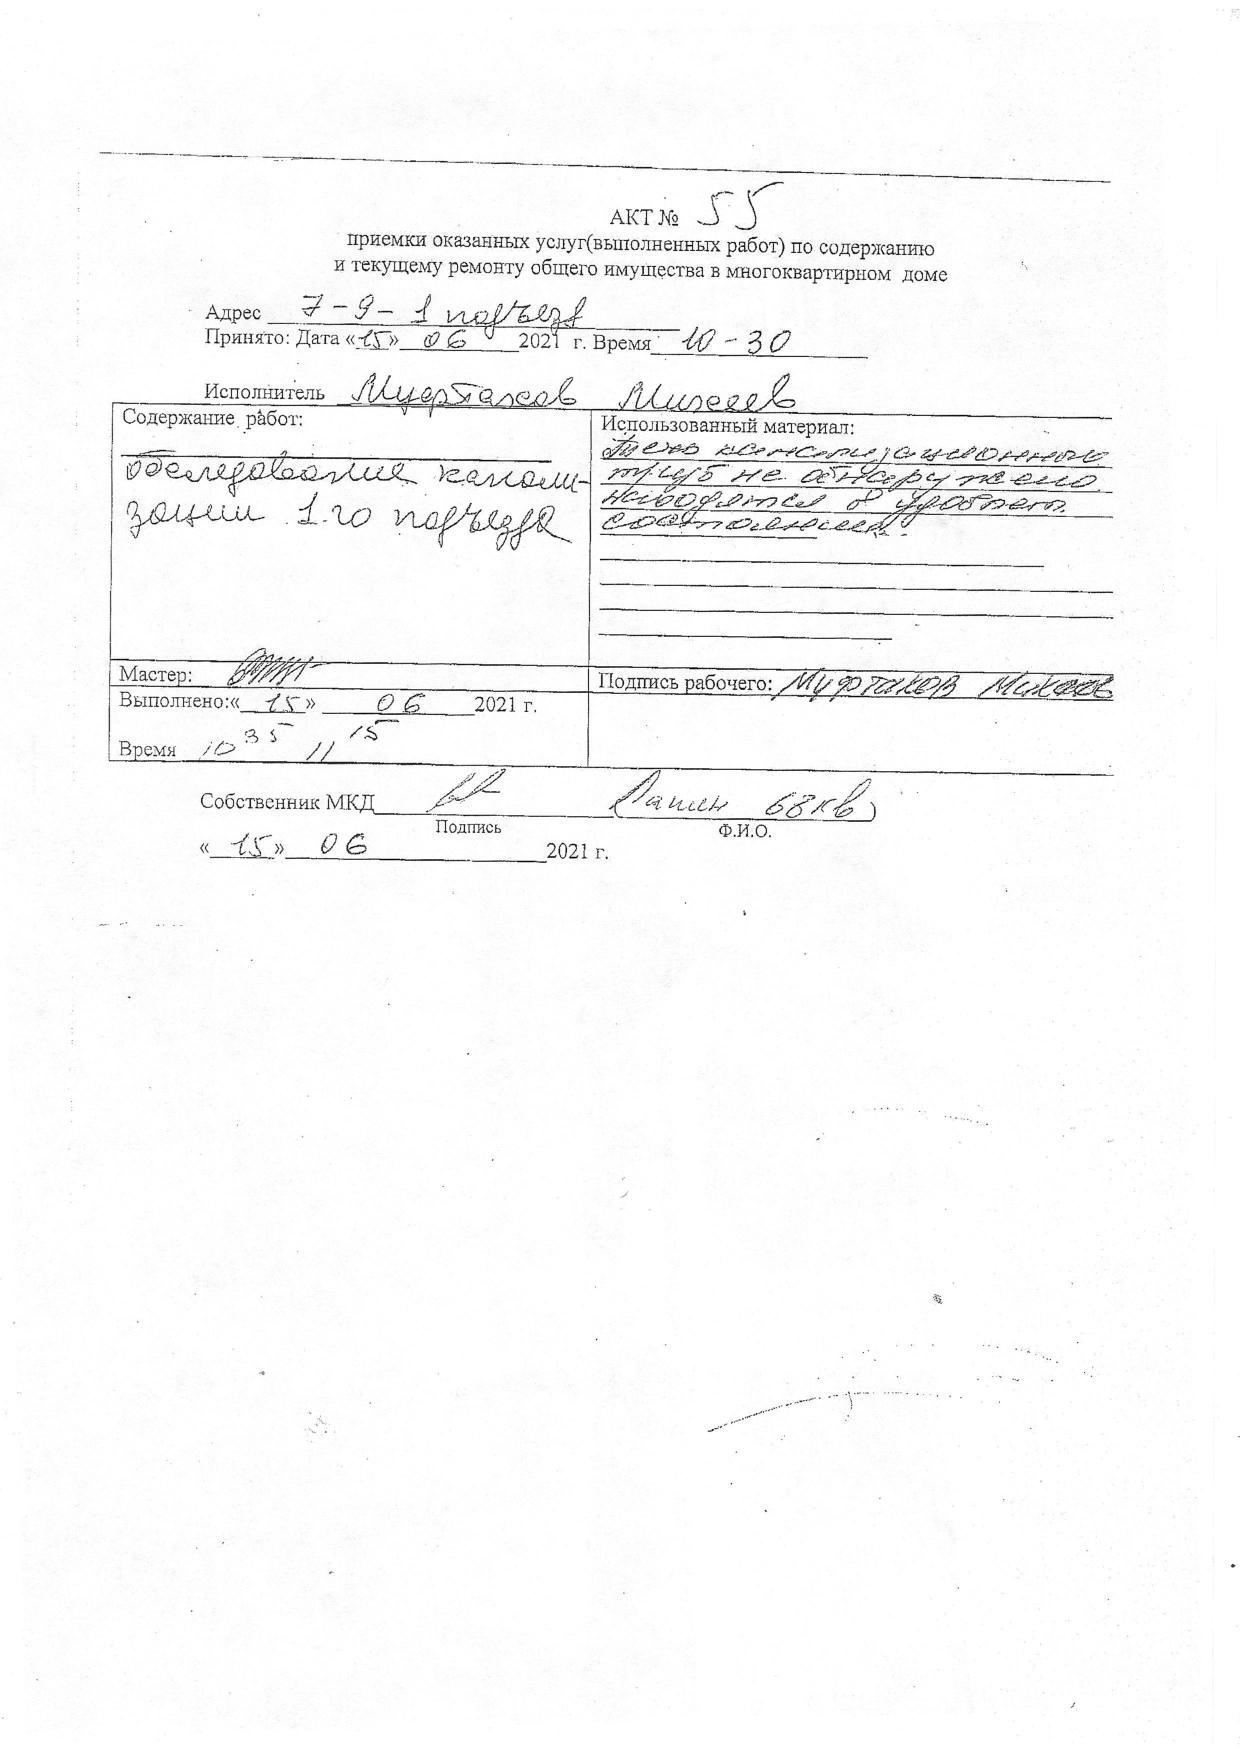 АКТ № 55
приемки оказанных услуг(выполненных работ) по содержанию
и текущему ремонту общего имущества в многоквартирном доме
Адрес 7-9-1 подъезд
Принято: Дата «15» 06 2021 г. Время 10-30
Исполнитель Муфтахов Михеев
Содержание работ:
обследование канали-
зации 1-го подъезда
Использованный материал:
Течь канализационных
труб не обнаружено
находятся в удовлет.
состоянии.
Мастер:
Подпись рабочего: Муфтахов Михеев
Выполнено:«15» 06 2021 г.
Время 10 35 11 15
Собственник МКД (Лапин 68 кв)
Подпись Ф.И.О.
«15» 06 2021 г.